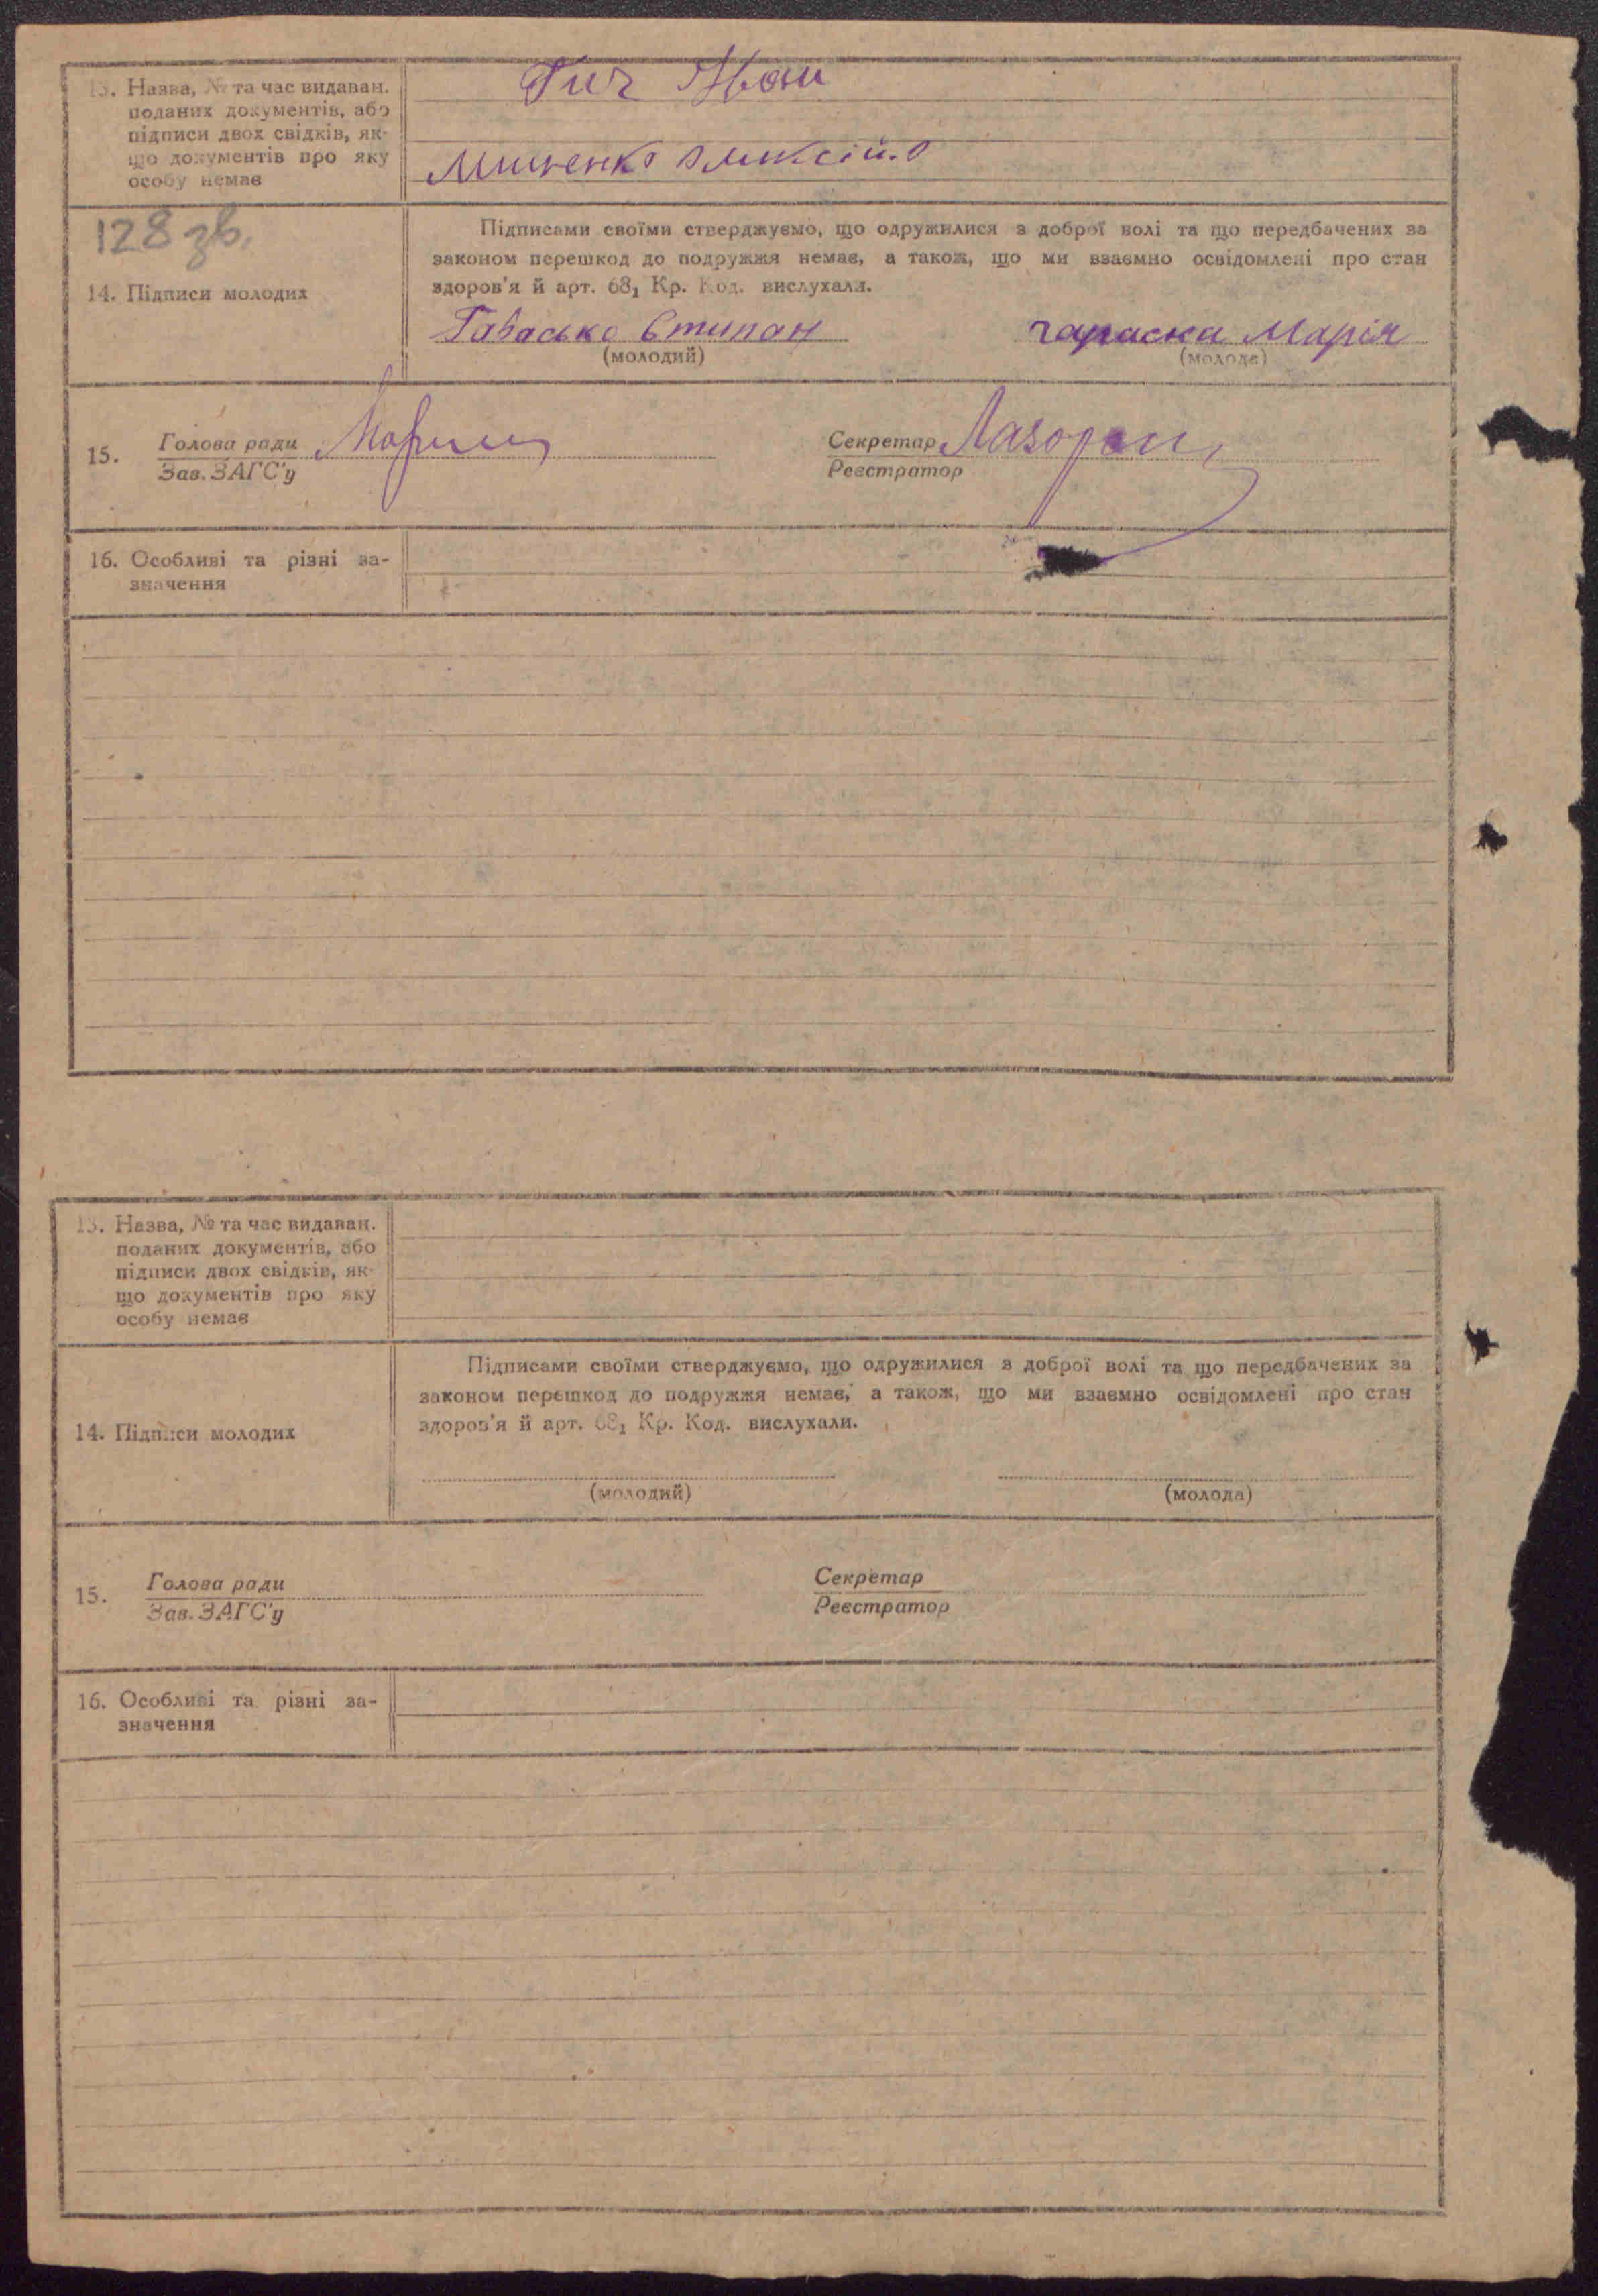 13. Назва, № та час видаван.
поданих документів, або
підписи двох свідків, як-
що документів про яку
особу немає
Гич Іван
128 зв.
14. Підписи молодих
Підписами своїми стверджуємо, що одружилися з доброї волі та що передбачених за
законом перешкод до подружжя немає, а також, що ми взаємно освідомлені про стан
здоров'я й арт. 68₁ Кр. Код. вислухали.
Гавасько Стипан
Марія
(молодий)
(молода)
15.
Голова ради
Зав. ЗАГС'у
Секретар
Реєстратор
16. Особливі та різні за-
значення
13. Назва, № та час видаван.
поданих документів, або
підписи двох свідків, як-
що документів про яку
особу немає
14. Підписи молодих
Підписами своїми стверджуємо, що одружилися з доброї волі та що передбачених за
законом перешкод до подружжя немає, а також, що ми взаємно освідомлені про стан
здоров'я й арт. 68₁ Кр. Код. вислухали.
(молодий)
(молода)
15.
Голова ради
Зав. ЗАГС'у
Секретар
Реєстратор
16. Особливі та різні за-
значення